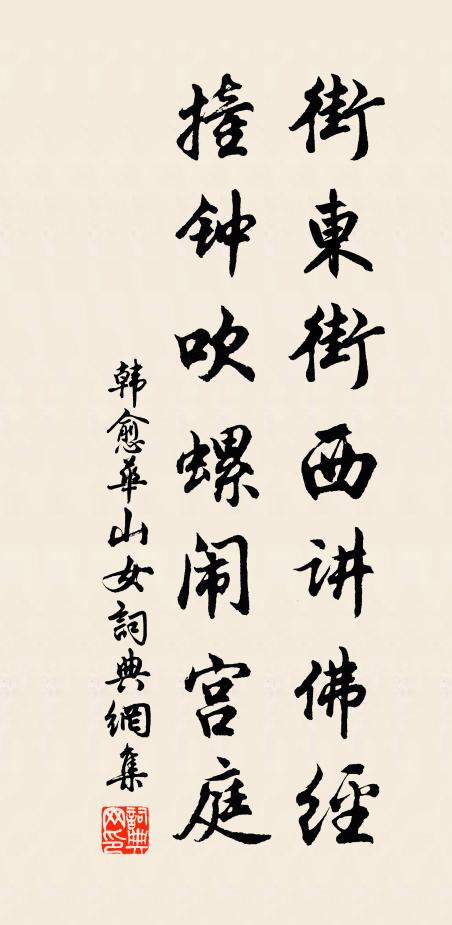 街東街西讲佛經
撞钟吹螺闹宫庭
韩愈華山女詞典網集
詞典网印